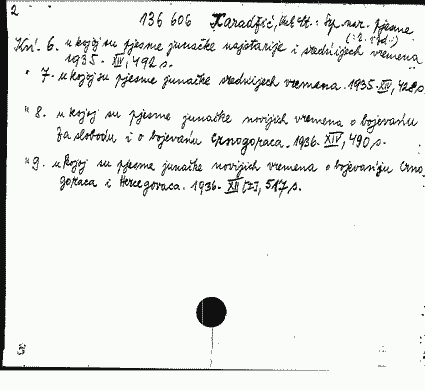 2
136 606 Karadžić, Vuk St.: Srp. nar. pjesme
(: 2. izd :)
Knj. 6. u kojoj su pjesme junačke najstarije i srednijech vremena
1935. XIV, 492 s.
" 7. u kojoj su pjesme junačke srednijech vremena. 1935. XIV, 428 s.
" 8. u kojoj su pjesme junačke novijih vremena o bojevanju
za slobodu i o bojevanju Crnogoraca. 1936. XIV, 490 s.
" 9. u kojoj su pjesme junačke novijih vremena o bojevanju Crno
goraca i Hercegovaca. 1936. XII [I], 517 s.